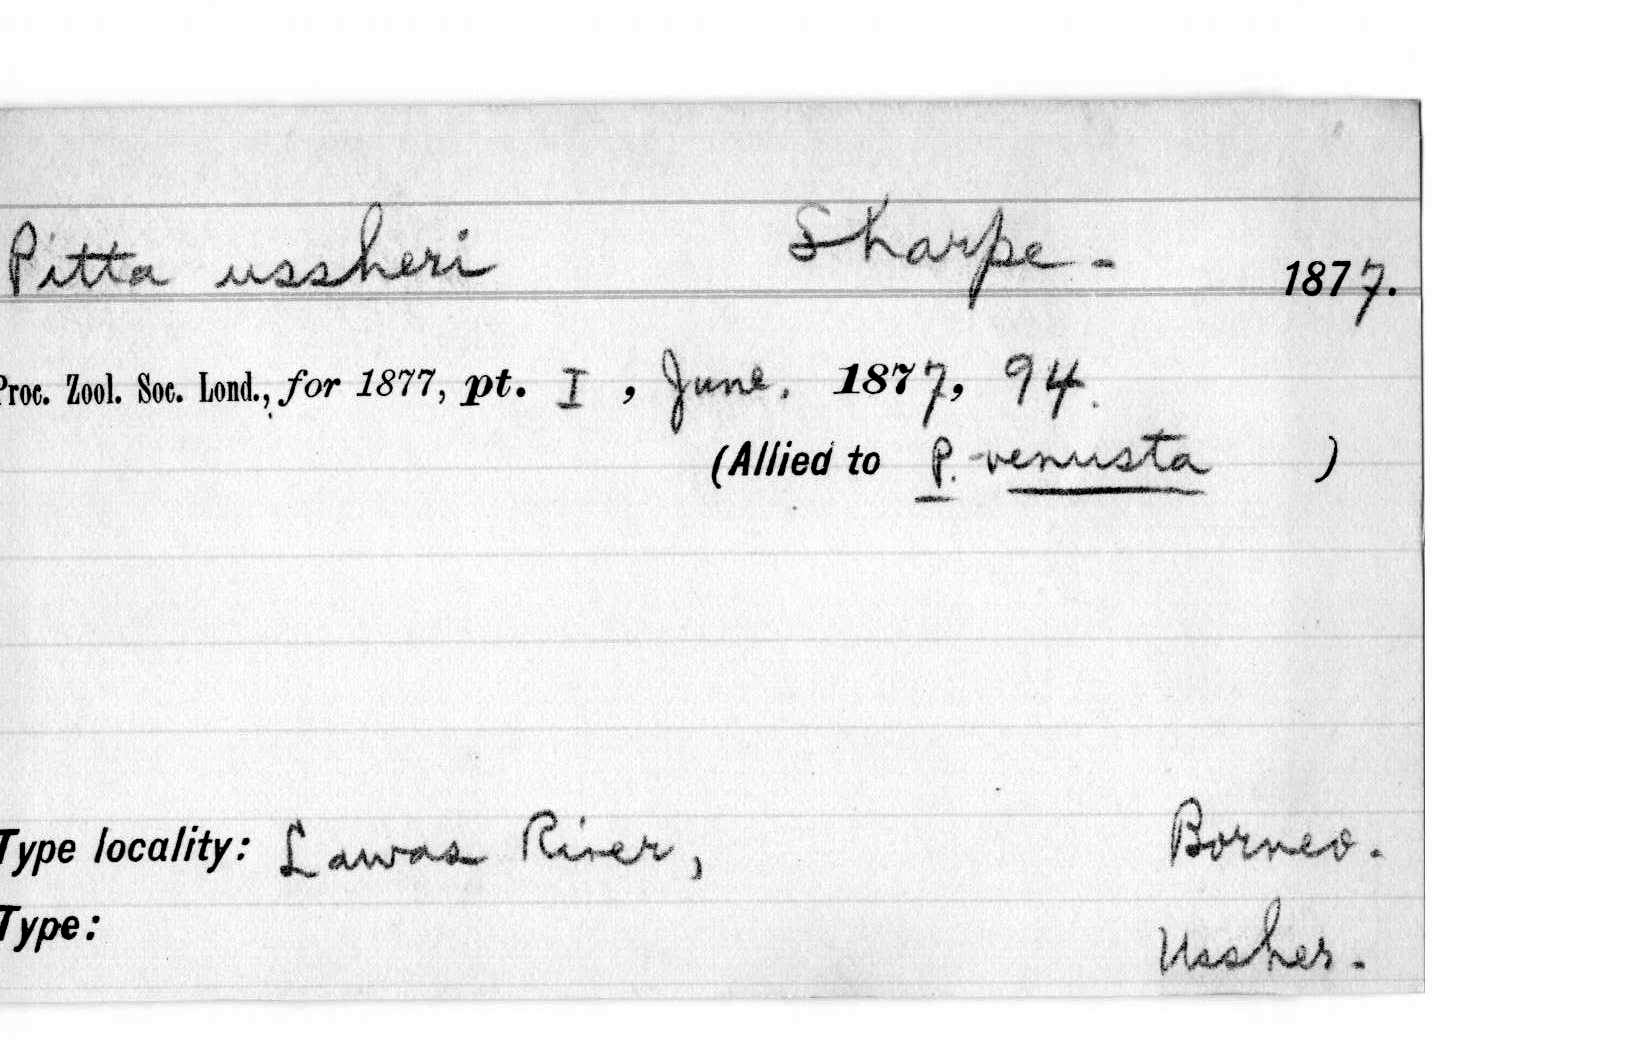 Pitta ussheri Sharpe - 1877.
Proc. Zool. Soc. Lond., for 1877, pt. I, June, 1877, 94.
(Allied to P. venusta )
Type locality: Lawas River, Borneo.
Type: Ussher.